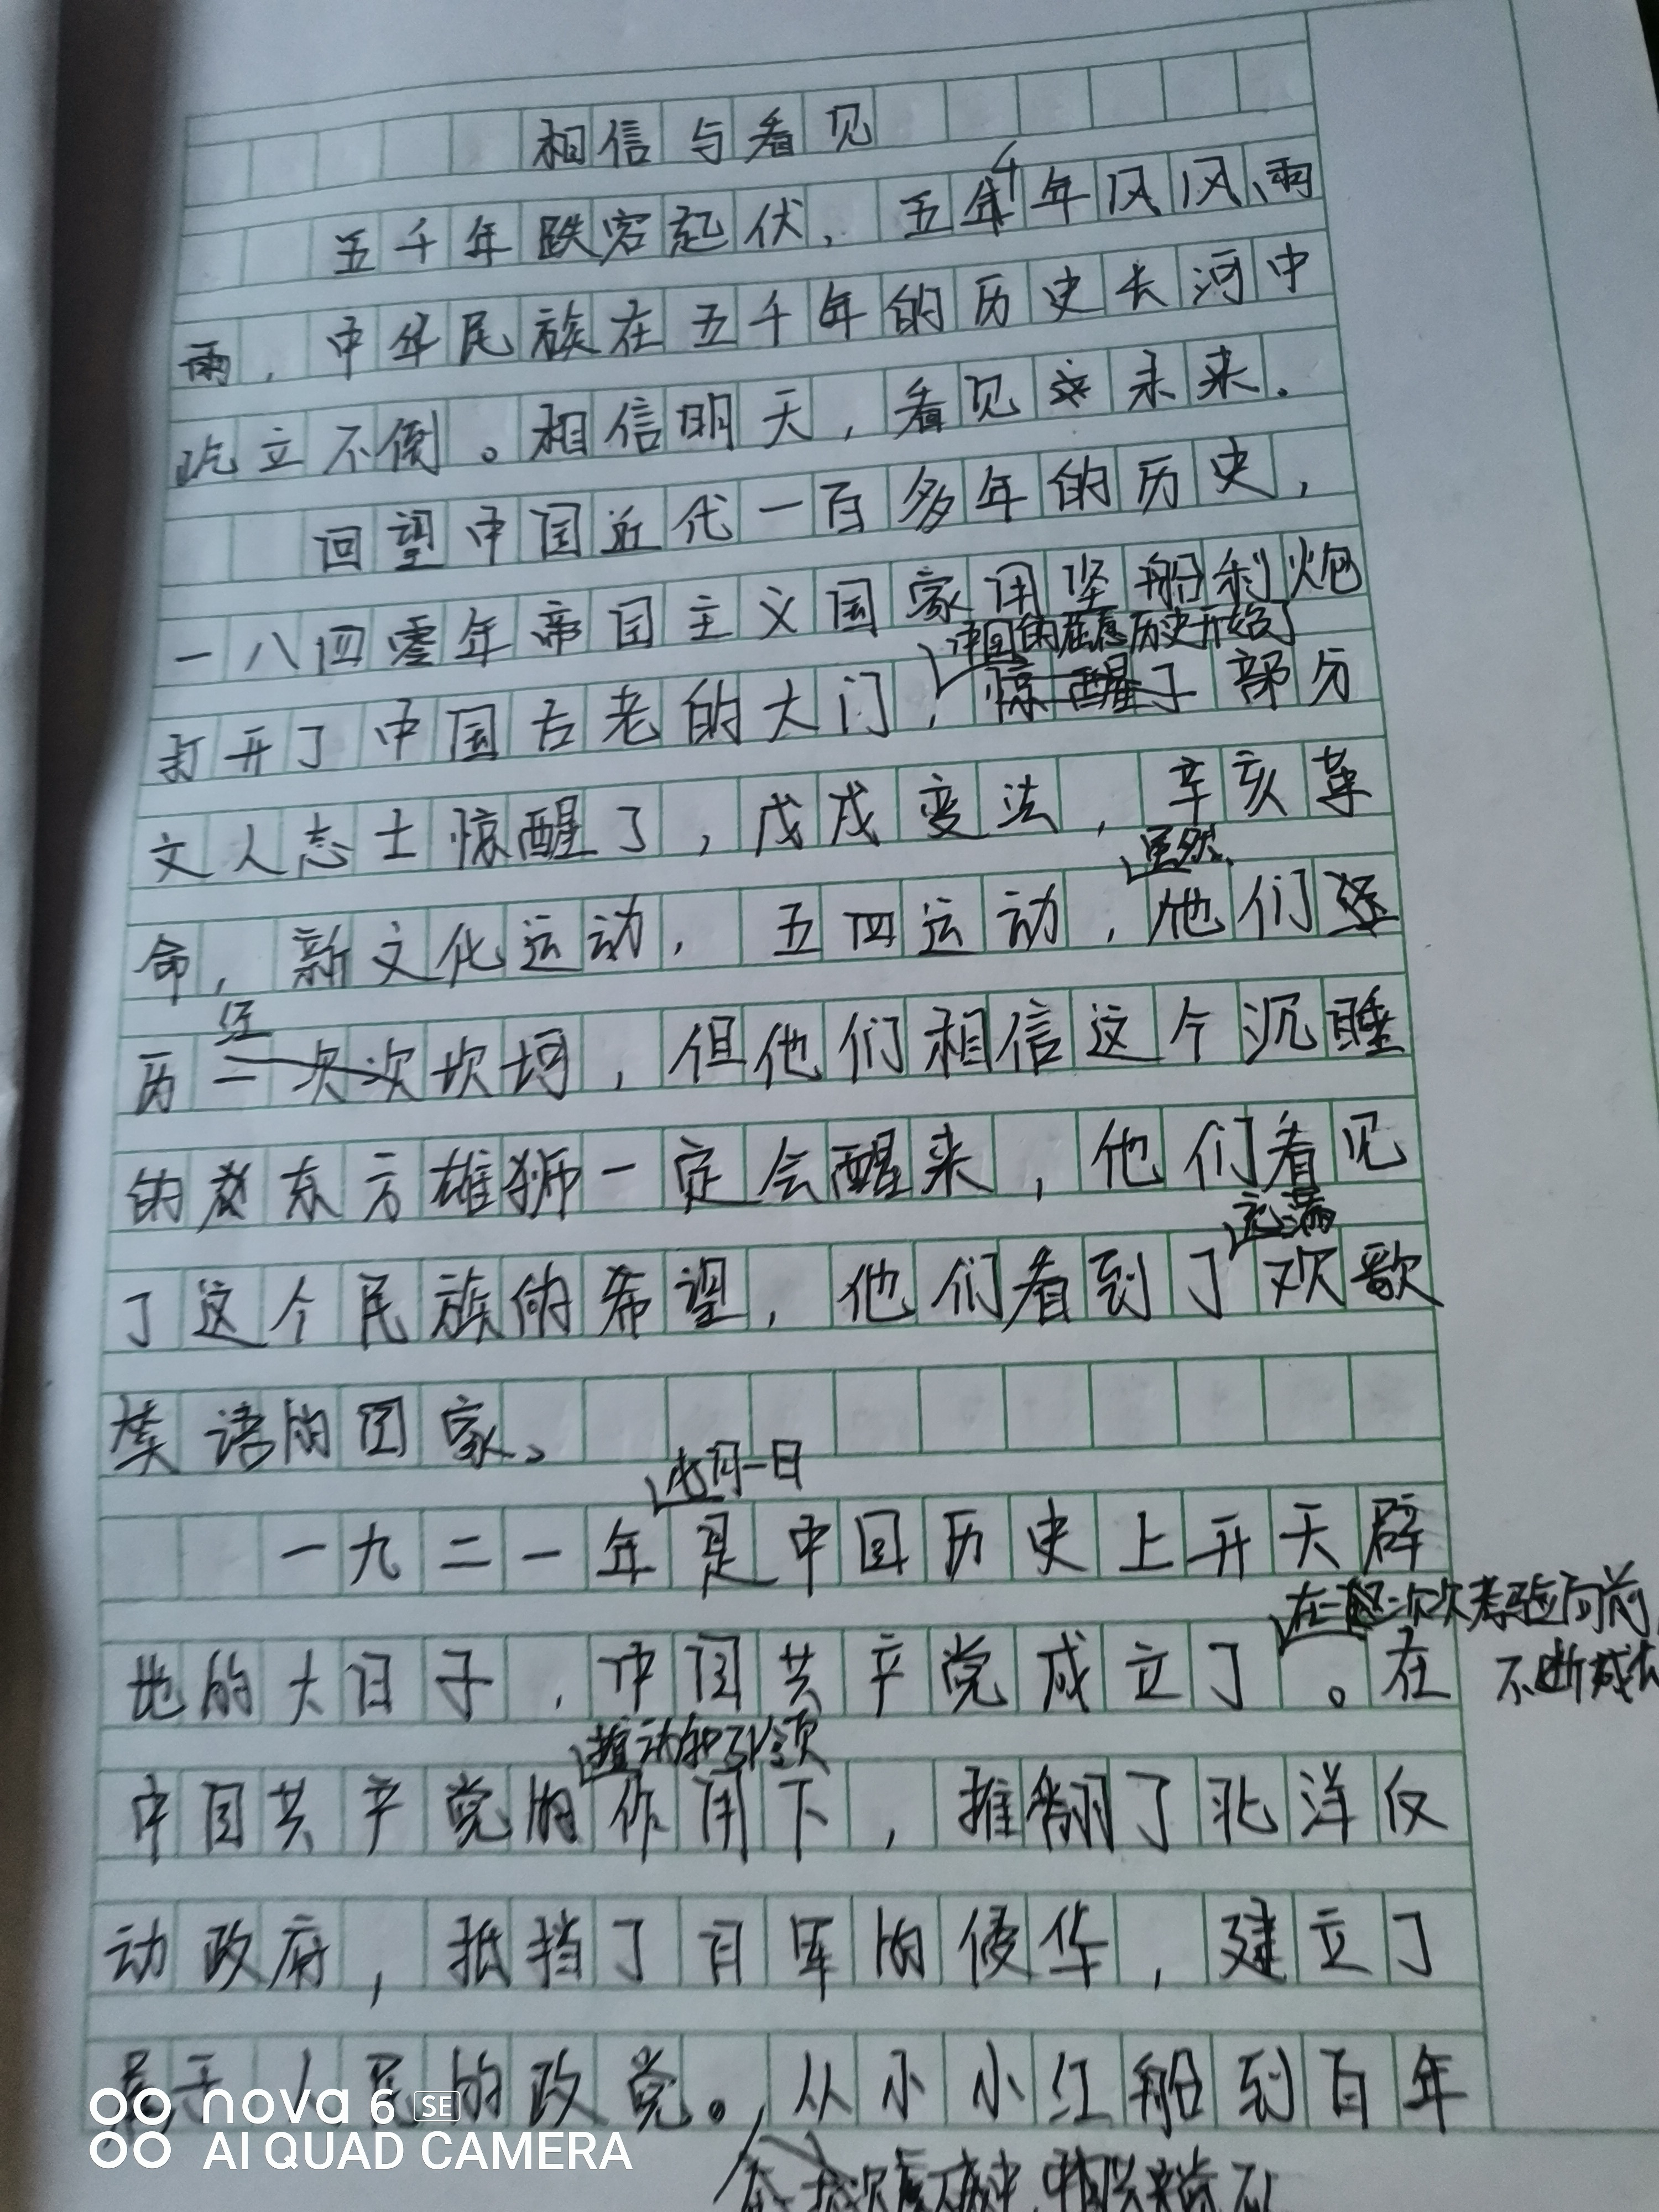 相信与看见
五千年跌宕起伏，五千年风风雨
雨，中华民族在五千年的历史长河中
屹立不倒。相信明天，看见未来。
回望中国近代一百多年的历史，
一八四零年帝国主义国家用坚船利炮
中国的屈辱历史开始了
打开了中国古老的大门，惊醒了部分
文人志士惊醒了，戊戌变法，辛亥革
虽然
命，新文化运动，五四运动，他们
经
历一次次坎坷，但他们相信这个沉睡
的东方雄狮一定会醒来，他们看见
充满
了这个民族的希望，他们看到了欢歌
笑语的国家。
七月一日
一九二一年是中国历史上开天辟
在一次次考验面前，
地的大日子，中国共产党成立了。在
不断成长
推动和引领
中国共产党的作用下，推翻了北洋反
动政府，抵挡了日军的侵华，建立了
属于人民的政党。，从小小红船到百年
nova 6 SE
AI QUAD CAMERA